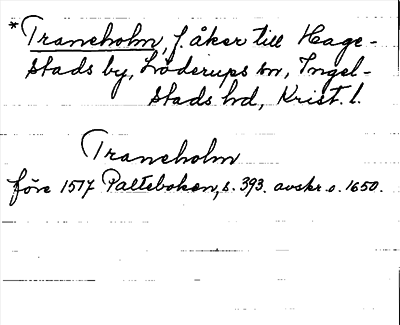 *Traneholm, f. åker till Hage-
stads by, Löderups sn, Ingel-
stads hd, Krist. l.
Traneholm
före 1517 Palteboken, s. 393. avskr. o. 1650.